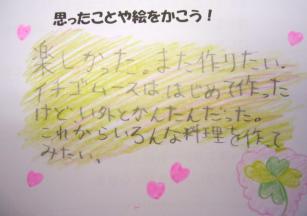 思ったことや絵をかこう！
楽しかった。また作りたい。
イチゴムースははじめて作った
けど、い外とかんたんだった。
これからいろんな料理を作って
みたい。